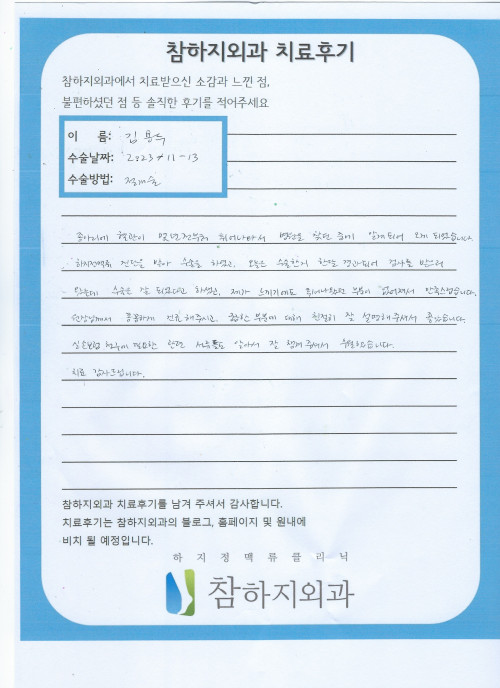 참하지외과 치료후기
참하지외과에서 치료받으신 소감과 느낀 점,
불편하셨던 점 등 솔직한 후기를 적어주세요
이 름: 김용득
수술날짜: 2023 11-13
수술방법: 절제술
종아리에 혈관이 몇년전부터 튀어나와서 병원을 찾던 중에 알게되어 오게 되었습니다.
하지정맥류 진단을 받아 수술을 하였고, 오늘은 수술한지 한달 경과되어 검사를 받으러
왔는데 수술은 잘 되었다고 하셨고, 제가 느끼기에도 튀어나왔던 부분이 없어져서 만족스럽습니다.
선생님께서 꼼꼼하게 진료해주시고, 궁금한 부분에 대해 친절히 잘 설명해주셔서 좋았습니다.
실손보험 청구에 필요한 관련 서류들도 알아서 잘 챙겨주셔서 수월했습니다.
치료 감사드립니다.
참하지외과 치료후기를 남겨 주셔서 감사합니다.
치료후기는 참하지외과의 블로그, 홈페이지 및 원내에
비치 될 예정입니다.
하지정맥류클리닉
참하지외과